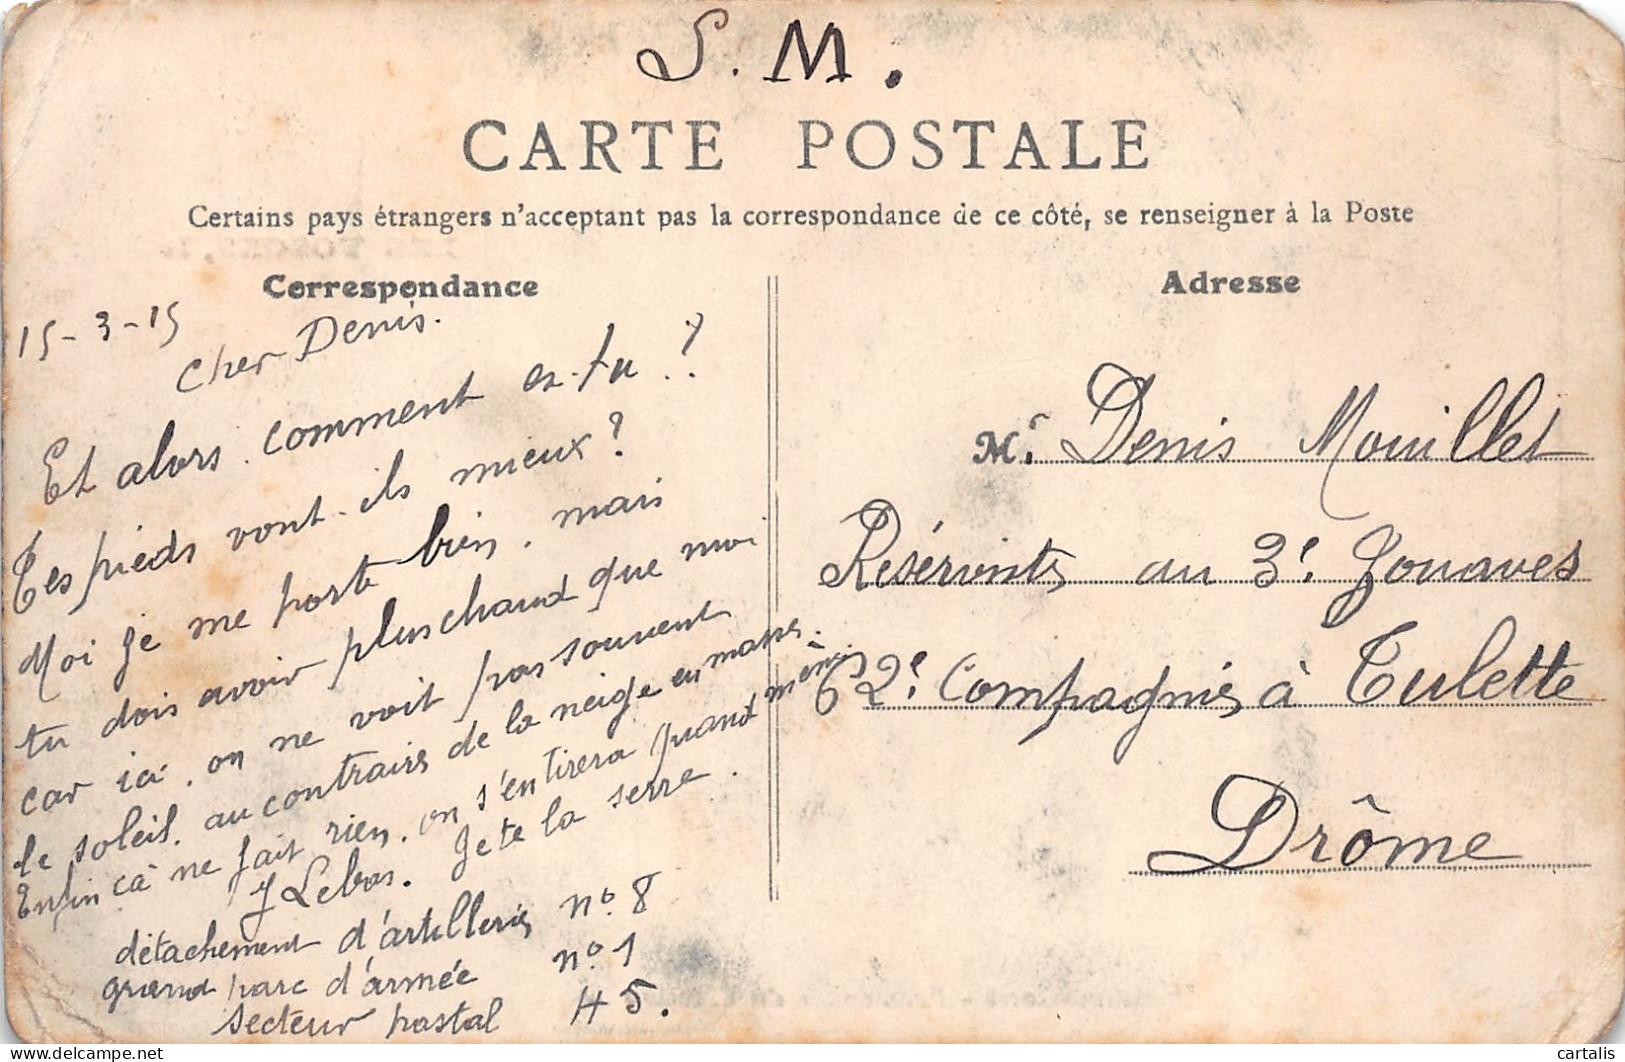 S. M.
CARTE POSTALE
Certains pays étrangers n'acceptant pas la correspondance de ce côté, se renseigner à la Poste
Correspondance
15-3-15
Cher Denis.
Et alors. comment es-tu ?
Tes pieds vont-ils mieux ?
Moi je me porte bien, mais
tu dois avoir plus chaud que moi
car ici, on ne voit pas souvent
le soleil, au contraire de la neige en masse.
Enfin çà ne fait rien, on s'en tirera quand même
J Lebas. Je te la serre.
détachement d'artillerie n° 8
grand parc d'armée n° 1
secteur postal 45.
Adresse
Mr. Denis Mouillet
Réserviste au 3e Zouaves
62e Compagnie à Tulette
Drôme
cartalis
www.delcampe.net